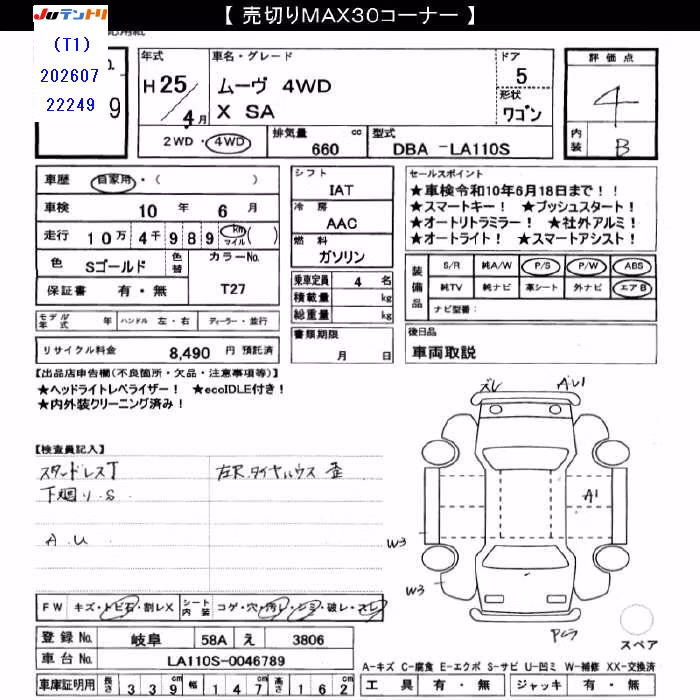 【 売切りMAX30コーナー 】
JUテントリ
(T1)
202607
22249
9
年式
H 25/4月
車名・グレード
ムーヴ 4WD
X SA
ドア
5
形状
ワゴン
評価点
4
内装
B
2WD・4WD
排気量 660 cc
型式 DBA -LA110S
車歴 自家用・( )
車検 10 年 6 月
走行 10万 4千 9 8 9 km マイル ( )
色 Sゴールド 色替
カラーNo. T27
保証書 有・無
モデル年式 年 ハンドル 左・右 ディーラー・並行
リサイクル料金 8,490 円 預託済
シフト
IAT
冷房
AAC
燃料
ガソリン
乗車定員 4 名
積載量 kg
総重量 kg
書類期限
月 日
セールスポイント
★車検令和10年6月18日まで！！
★スマートキー！ ★プッシュスタート！
★オートリトラミラー！ ★社外アルミ！
★オートライト！ ★スマートアシスト！
装備品
S/R 純A/W P/S P/W ABS
純TV 純ナビ 革シート 外ナビ エアB
ナビ型番:
後日品
車両取説
【出品店申告欄(不良箇所・欠品・注意事項等)】
★ヘッドライトレベライザー！ ★ecoIDLE付き！
★内外装クリーニング済み！
【検査員記入】
スタッドレスT
下廻り.S
A.U
左R.タイヤハウス 歪
ズレ
A1
A1
W3
W3
スペア
FW キズ・トビ石・割レX
シート内装 コゲ・穴・汚レ・シミ・破レ・スレ
登録No. 岐阜 58A え 3806
車台No. LA110S-0046789
車庫証明用 長さ 3 3 9 cm 幅 1 4 7 cm 高さ 1 6 2 cm
A-キズ C-腐食 E-エクボ S-サビ U-凹ミ W-補修 XX-交換済
工具 有・無 ジャッキ 有・無